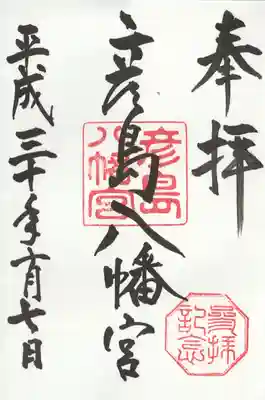 奉拝
彦島八幡宮
平成三十年十月七日
彦島
八幡宮
參拝
記念